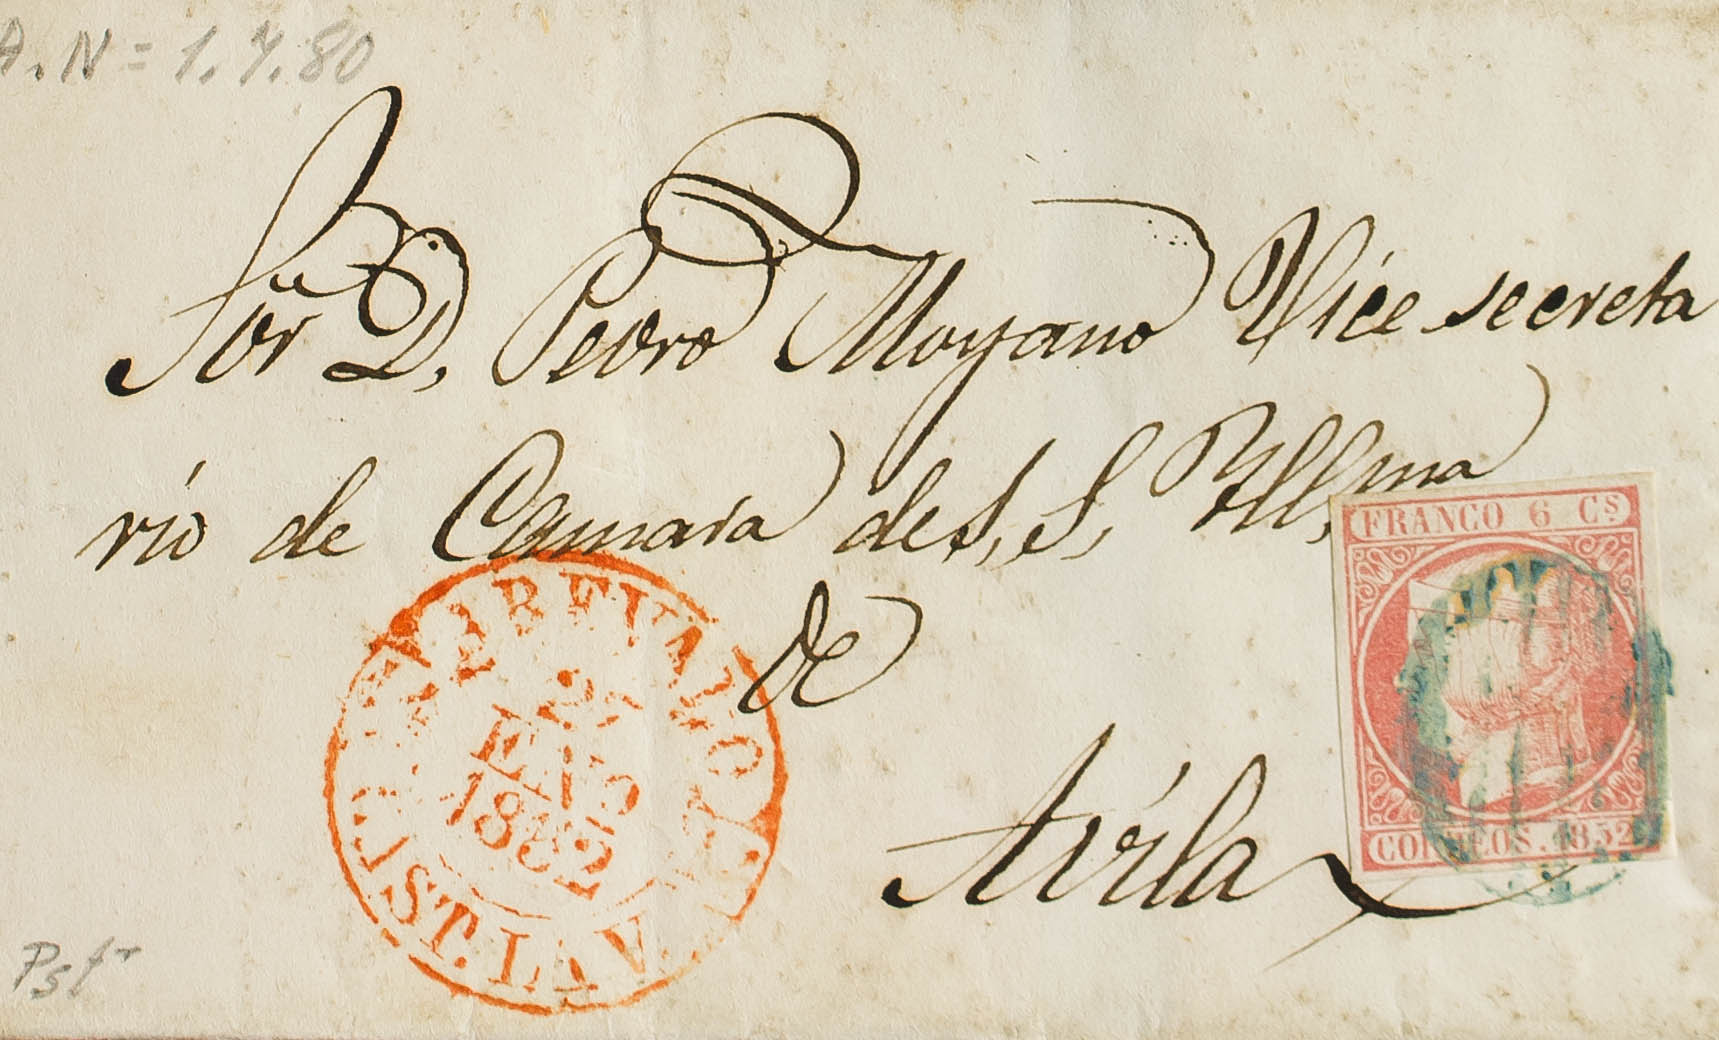 A. N = 1.7.80
Sör D. Pedro Moyano Vice secreta
rio de Camara de S. S. Yllma
de
Avíla
FRANCO 6 Cs
CORREOS. 1852
AREVALO
ENO
1852
Pstr